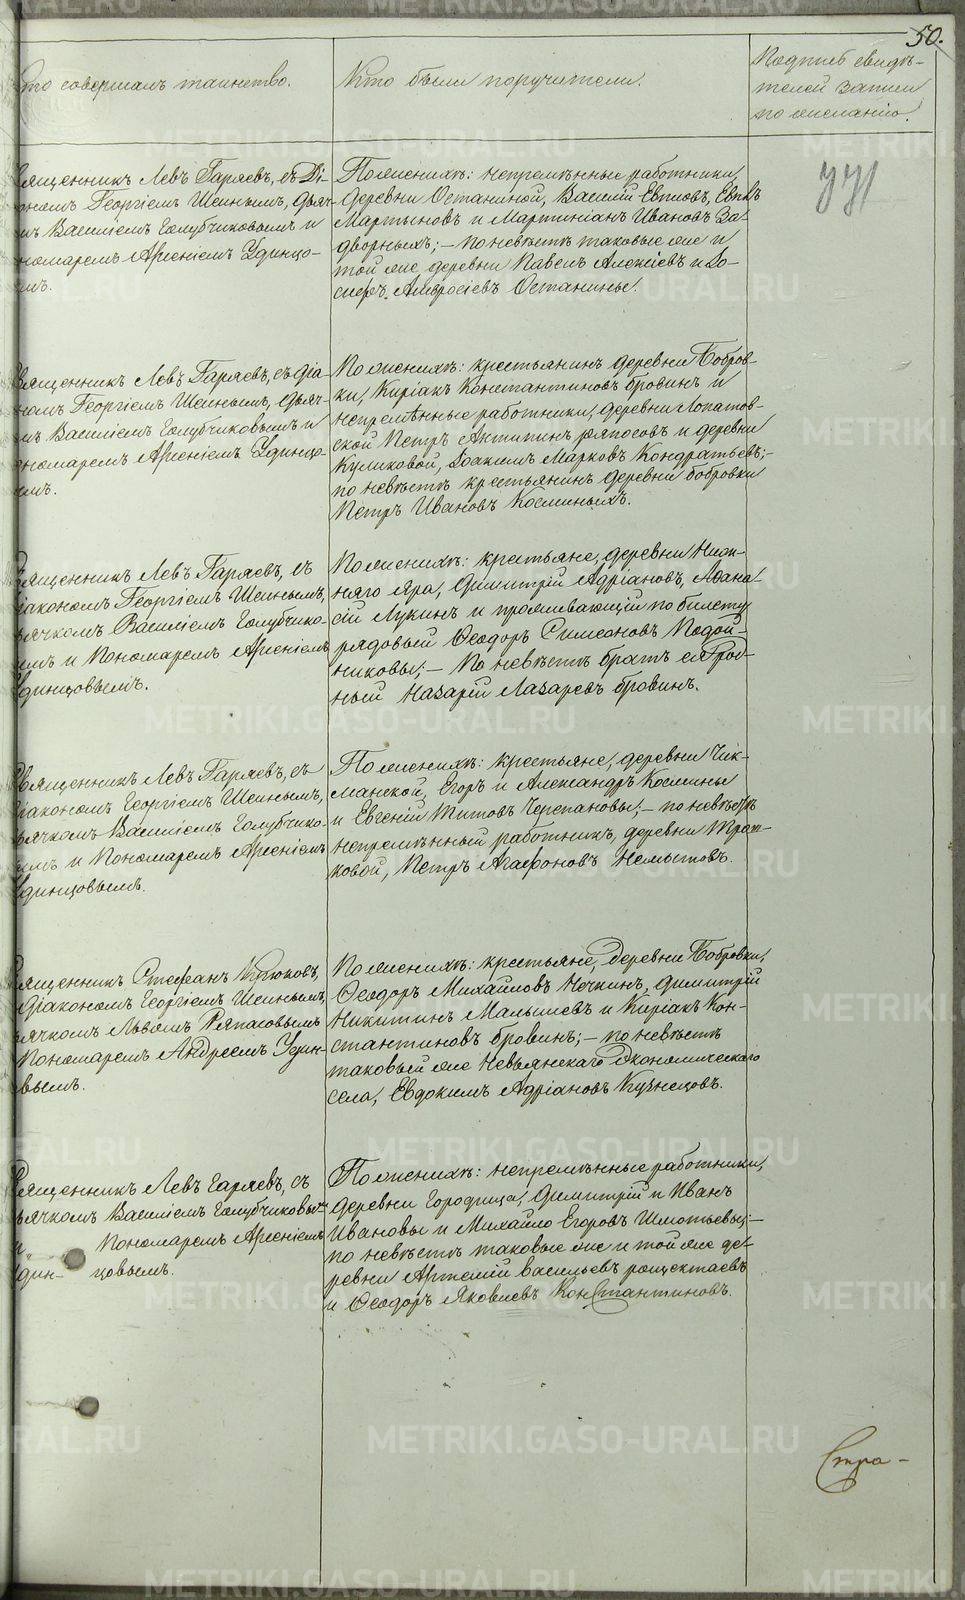 50.
то совершалъ таинство.
Кто были поручители.
Подпись свидѣ-
телей записи
по желанію.
вященникъ Левъ Гаряевъ, съ Ді-
кономъ Георгіемъ Шеинымъ, дьяч-
мъ Василіемъ Голубчиковымъ и
номаремъ Арсеніемъ Удинцо-
мъ.
По женихѣ: непремѣнные работники,
деревни Останиной, Василій
Мартыновъ и Мартиніанъ Ивановъ За-
дворныхъ; — по невѣстѣ таковые же и
той же деревни Павелъ Алексіевъ и До-
Амвросіевъ Останины.
вященникъ Левъ Гаряевъ, съ діа-
номъ Георгіемъ Шеинымъ, дьяч-
мъ Василіемъ Голубчиковымъ и
ономаремъ Арсеніемъ Удинцо-
мъ.
По женихѣ: крестьянинъ деревни Бобров-
ки, Киріакъ Константиновъ Бровинъ и
непремѣнные работники, деревни Лопатов-
ской Петръ Антипинъ Ряпосовъ и деревни
Куликовой, Іоакимъ Марковъ Кондратьевъ; —
по невѣстѣ крестьянинъ деревни Бобровки
Петръ Ивановъ Косминыхъ.
вященникъ Левъ Гаряевъ, съ
іакономъ Георгіемъ Шеинымъ,
ьячкомъ Василіемъ Голубчико-
мъ и Пономаремъ Арсеніемъ
Удинцовымъ.
По женихѣ: крестьяне, деревни Ниж-
няго Яра, Димитрій Адріановъ, Аѳана-
сій Лукинъ и проживающій по билету
рядовый Ѳеодоръ Симеоновъ Подой-
никовы; — По невѣстѣ братъ ея Род-
ный Назарій Лазаревъ Бровинъ.
вященникъ Левъ Гаряевъ, съ
іакономъ Георгіемъ Шеинымъ,
ьячкомъ Василіемъ Голубчико-
мъ и Пономаремъ Арсеніемъ
Удинцовымъ.
По женихѣ: крестьяне, деревни Чик-
манской, Егоръ и Александръ Космины
и Евгеній Титовъ Черепановы; — по невѣстѣ
непремѣнный работникъ, деревни
ковой, Петръ Агафоновъ Немытовъ.
вященникъ Стефанъ Крюковъ,
Діакономъ Георгіемъ Шеинымъ,
ьячкомъ Львомъ Ряпасовымъ
Пономаремъ Андреемъ Удин-
вымъ.
По женихѣ: крестьяне, деревни Бобровки,
Ѳеодоръ Михайловъ Нечкинъ, Димитрій
Никитинъ Малышевъ и Киріакъ Кон-
стантиновъ Бровинъ; — по невѣстѣ
таковый же Невьянскаго Экономическаго
села, Евдокимъ Адріановъ Кузнецовъ.
вященникъ Левъ Гаряевъ, съ
ьячкомъ Василіемъ Голубчиковы
и Пономаремъ Арсеніемъ
Удин- цовымъ.
По женихѣ: непремѣнные работники,
деревни Городища, Димитрій и Иванъ
Ивановы и Михайло Егоровъ Шмотьевы; —
по невѣстѣ таковые же и той же де-
ревни Артемій Васильевъ Рощектаевъ
и Ѳеодоръ Яковлевъ Константиновъ.
Стра-